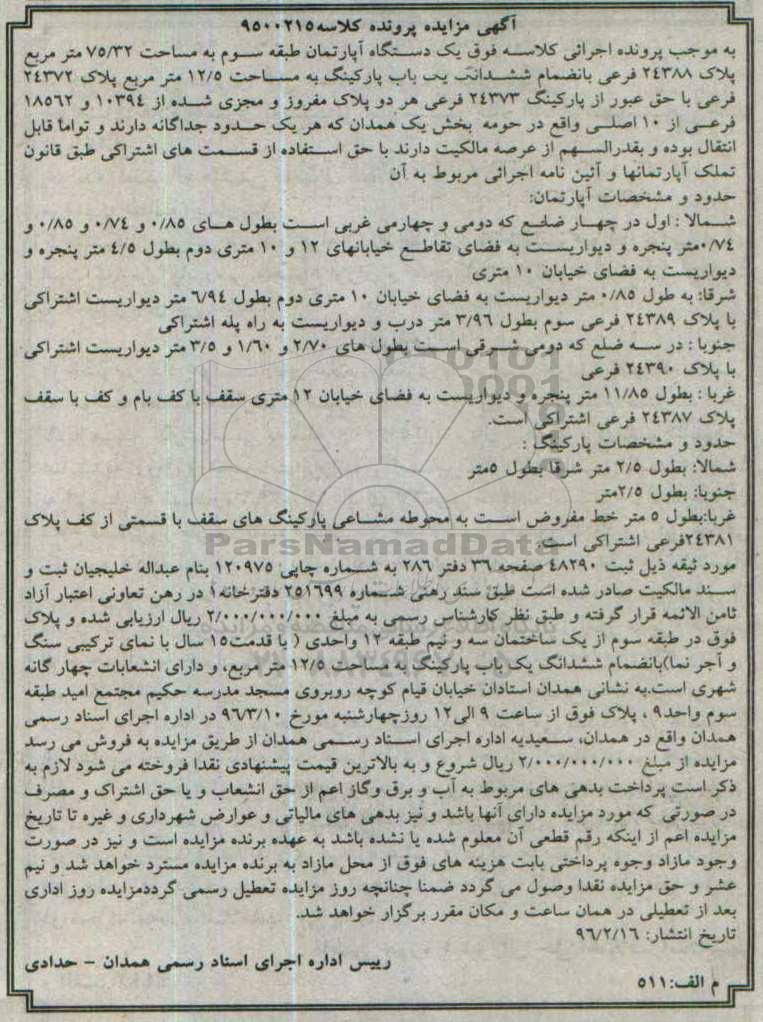 آگهی مزایده پرونده کلاسه۹۵۰۰۲۱۵
به موجب پرونده اجرائی کلاسه فوق یک دستگاه آپارتمان طبقه سوم به مساحت ۷۵/۳۲ متر مربع
پلاک ۲۴۳۸۸ فرعی بانضمام ششدانگ یک باب پارکینگ به مساحت ۱۲/۵ متر مربع پلاک ۲۴۳۷۲
فرعی با حق عبور از پارکینگ ۲۴۳۷۳ فرعی هر دو پلاک مفروز و مجزی شده از ۱۰۳۹۴ و ۱۸۵۶۲
فرعی از ۱۰ اصلی واقع در حومه بخش یک همدان که هر یک حدود جداگانه دارند و تواماً قابل
انتقال بوده و بقدرالسهم از عرصه مالکیت دارند با حق استفاده از قسمت های اشتراکی طبق قانون
تملک آپارتمانها و آئین نامه اجرائی مربوط به آن
حدود و مشخصات آپارتمان:
شمالا : اول در چهار ضلع که دومی و چهارمی غربی است بطول های ۰/۸۵ و ۰/۷۴ و ۰/۸۵ و
۰/۷۴متر پنجره و دیواریست به فضای تقاطع خیابانهای ۱۲ و ۱۰ متری دوم بطول ۴/۵ متر پنجره و
دیواریست به فضای خیابان ۱۰ متری
شرقا: به طول ۰/۸۵ متر دیواریست به فضای خیابان ۱۰ متری دوم بطول ۶/۹۴ متر دیواریست اشتراکی
با پلاک ۲۴۳۸۹ فرعی سوم بطول ۳/۹۶ متر درب و دیواریست به راه پله اشتراکی
جنوبا : در سه ضلع که دومی شرقی است بطول های ۲/۷۰ و ۱/۶۰ و ۳/۵ متر دیواریست اشتراکی
با پلاک ۲۴۳۹۰ فرعی
غربا : بطول ۱۱/۸۵ متر پنجره و دیواریست به فضای خیابان ۱۲ متری سقف با کف بام و کف با سقف
پلاک ۲۴۳۸۷ فرعی اشتراکی است.
حدود و مشخصات پارکینگ :
شمالا: بطول ۲/۵ متر شرقا بطول ۵متر
جنوبا: بطول ۲/۵متر
غربا:بطول ۵ متر خط مفروض است به محوطه مشاعی پارکینگ های سقف با قسمتی از کف پلاک
۲۴۳۸۱فرعی اشتراکی است.
ParsNamadData
مورد ثیقه ذیل ثبت ۴۸۲۹۰ صفحه ۳۶ دفتر ۲۸۶ به شماره چاپی ۱۲۰۹۷۵ بنام عبداله خلیجیان ثبت و
سند مالکیت صادر شده است طبق سند رهنی شماره ۲۵۱۶۹۹ دفترخانه۱ در رهن تعاونی اعتبار آزاد
ثامن الائمه قرار گرفته و طبق نظر کارشناس رسمی به مبلغ ۲/۰۰۰/۰۰۰/۰۰۰ ریال ارزیابی شده و پلاک
فوق در طبقه سوم از یک ساختمان سه و نیم طبقه ۱۲ واحدی ( با قدمت۱۵ سال با نمای ترکیبی سنگ
و آجر نما)بانضمام ششدانگ یک باب پارکینگ به مساحت ۱۲/۵ متر مربع، و دارای انشعابات چهار گانه
شهری است.به نشانی همدان استادان خیابان قیام کوچه روبروی مسجد مدرسه حکیم مجتمع امید طبقه
سوم واحد۹ ، پلاک فوق از ساعت ۹ الی۱۲ روزچهارشنبه مورخ ۹۶/۳/۱۰ در اداره اجرای اسناد رسمی
همدان واقع در همدان، سعیدیه اداره اجرای اسناد رسمی همدان از طریق مزایده به فروش می رسد
مزایده از مبلغ ۲/۰۰۰/۰۰۰/۰۰۰ ریال شروع و به بالاترین قیمت پیشنهادی نقدا فروخته می شود لازم به
ذکر است پرداخت بدهی های مربوط به آب و برق وگاز اعم از حق انشعاب و یا حق اشتراک و مصرف
در صورتی که مورد مزایده دارای آنها باشد و نیز بدهی های مالیاتی و عوارض شهرداری و غیره تا تاریخ
مزایده اعم از اینکه رقم قطعی آن معلوم شده یا نشده باشد به عهده برنده مزایده است و نیز در صورت
وجود مازاد وجوه پرداختی بابت هزینه های فوق از محل مازاد به برنده مزایده مسترد خواهد شد و نیم
عشر و حق مزایده نقدا وصول می گردد ضمنا چنانچه روز مزایده تعطیل رسمی گرددمزایده روز اداری
بعد از تعطیلی در همان ساعت و مکان مقرر برگزار خواهد شد.
تاریخ انتشار: ۹۶/۲/۱۶
رییس اداره اجرای اسناد رسمی همدان - حدادی
م الف:۵۱۱